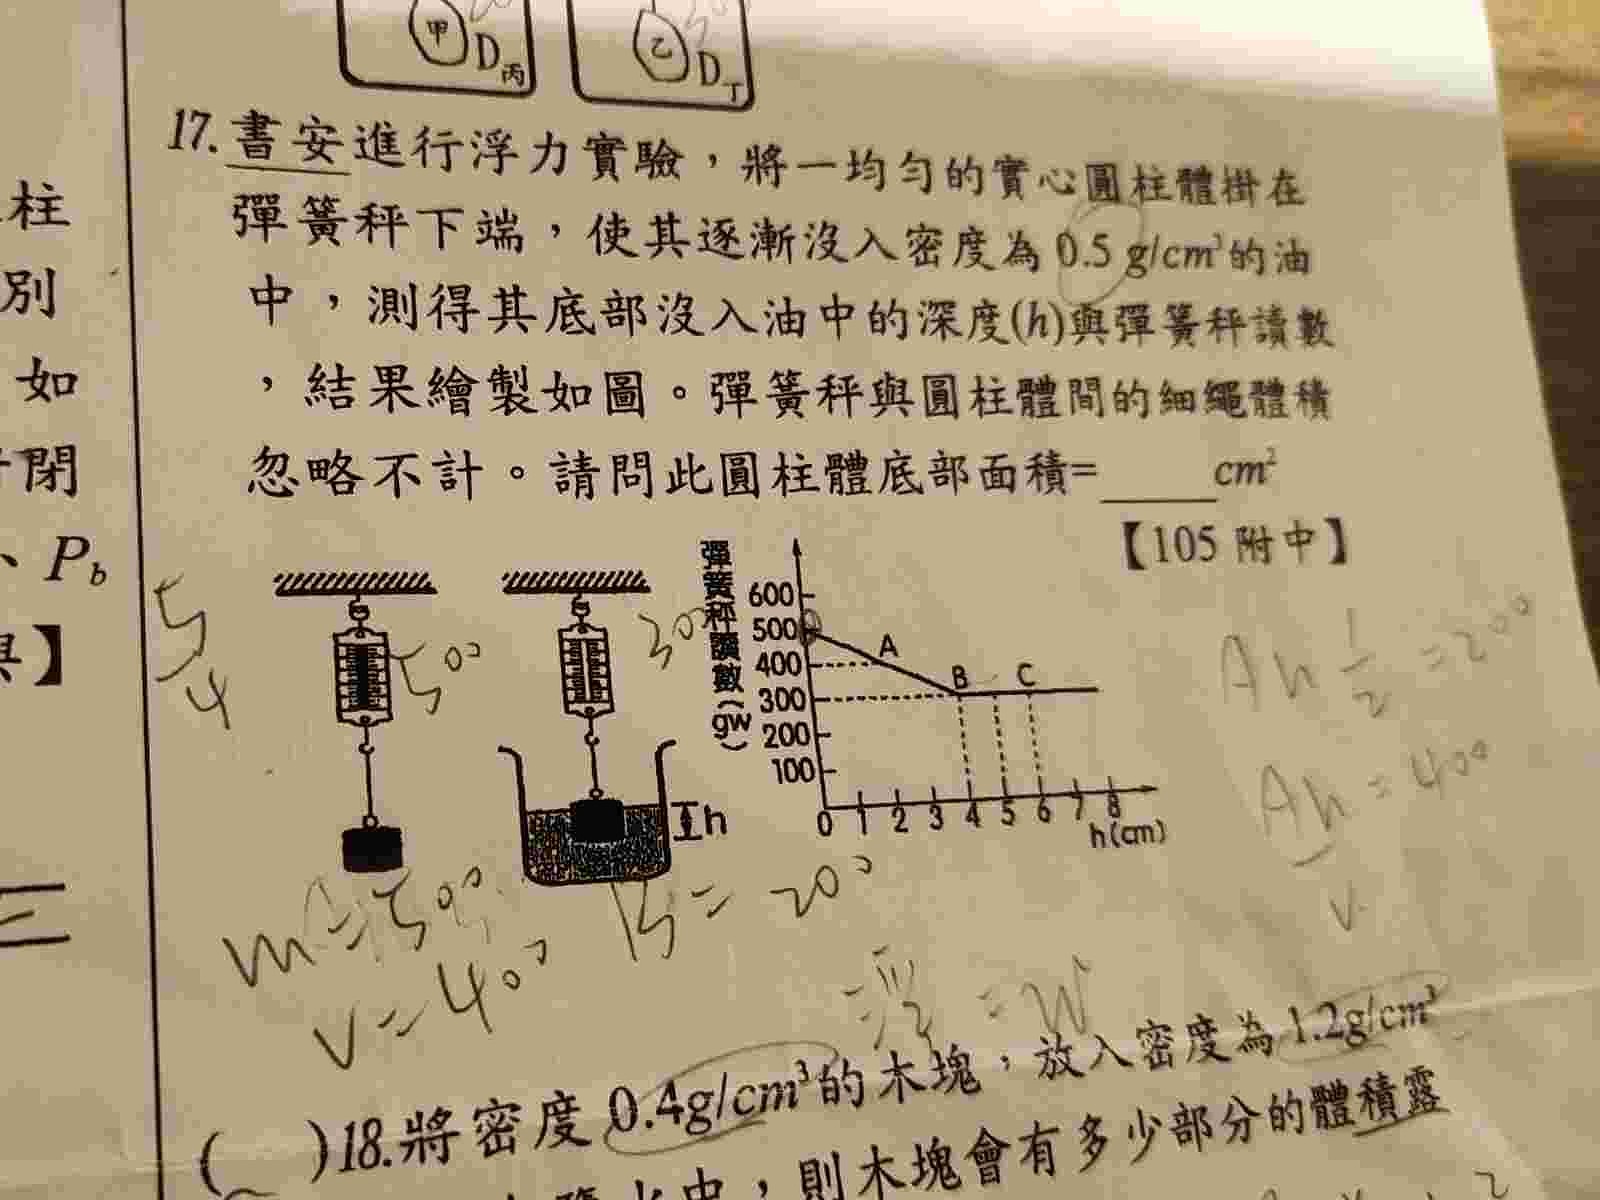 甲 D丙 乙 D丁
17.書安進行浮力實驗，將一均勻的實心圓柱體掛在
彈簧秤下端，使其逐漸沒入密度為 0.5 g/cm³的油
中，測得其底部沒入油中的深度(h)與彈簧秤讀數
，結果繪製如圖。彈簧秤與圓柱體間的細繩體積
忽略不計。請問此圓柱體底部面積=______cm²
【105 附中】
柱
別
如
閉
、P_b
】
5/4
500
300
彈簧秤讀數(gw)
600
500
400
300
200
100
A
B
C
0 1 2 3 4 5 6 7 8
h(cm)
h
Ah 1/2 = 200
Ah = 400
V
m = 500
B = 200
V = 400
浮 = W
( )18.將密度 0.4g/cm³的木塊，放入密度為 1.2g/cm³
水中，則木塊會有多少部分的體積露